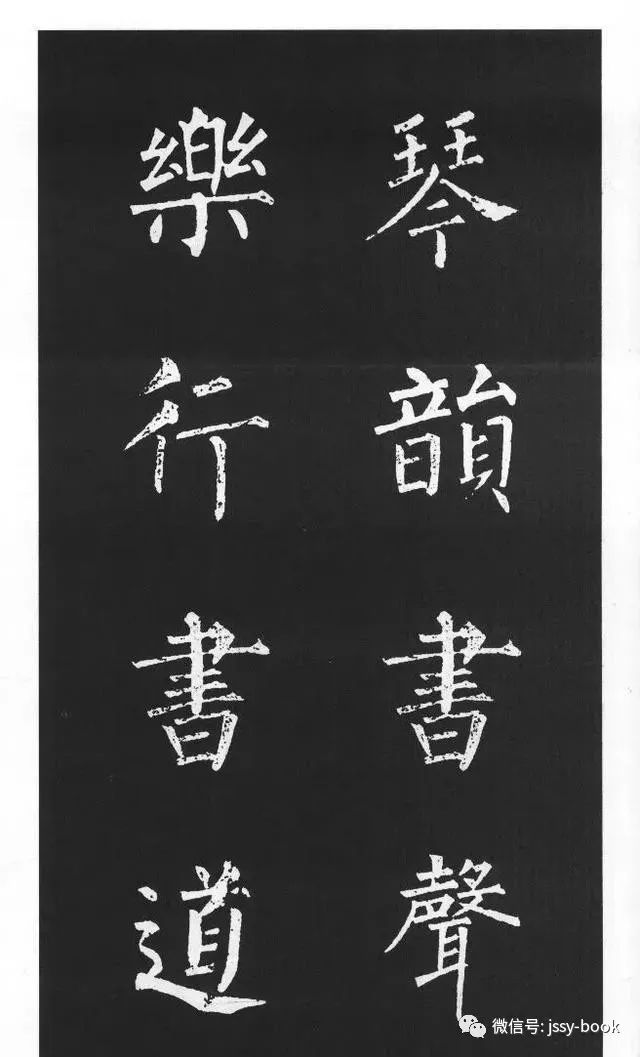 琴韻書聲
樂行書道
微信号: jssy-book